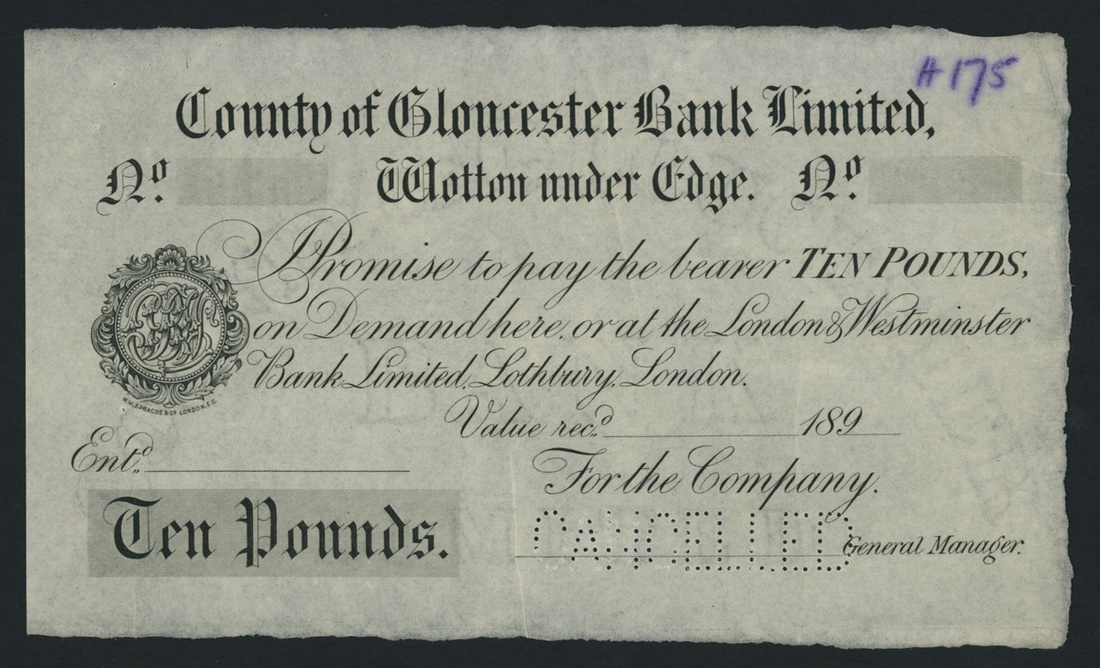 A 175
County of Gloucester Bank Limited,
No. Wotton under Edge. No.
I Promise to pay the bearer TEN POUNDS,
on Demand here, or at the London & Westminster
Bank Limited, Lothbury, London.
W.W. SPRAGUE & Co LONDON, E.C.
Value recd. 189
Entd.
For the Company.
Ten Pounds.
CANCELLED
General Manager.